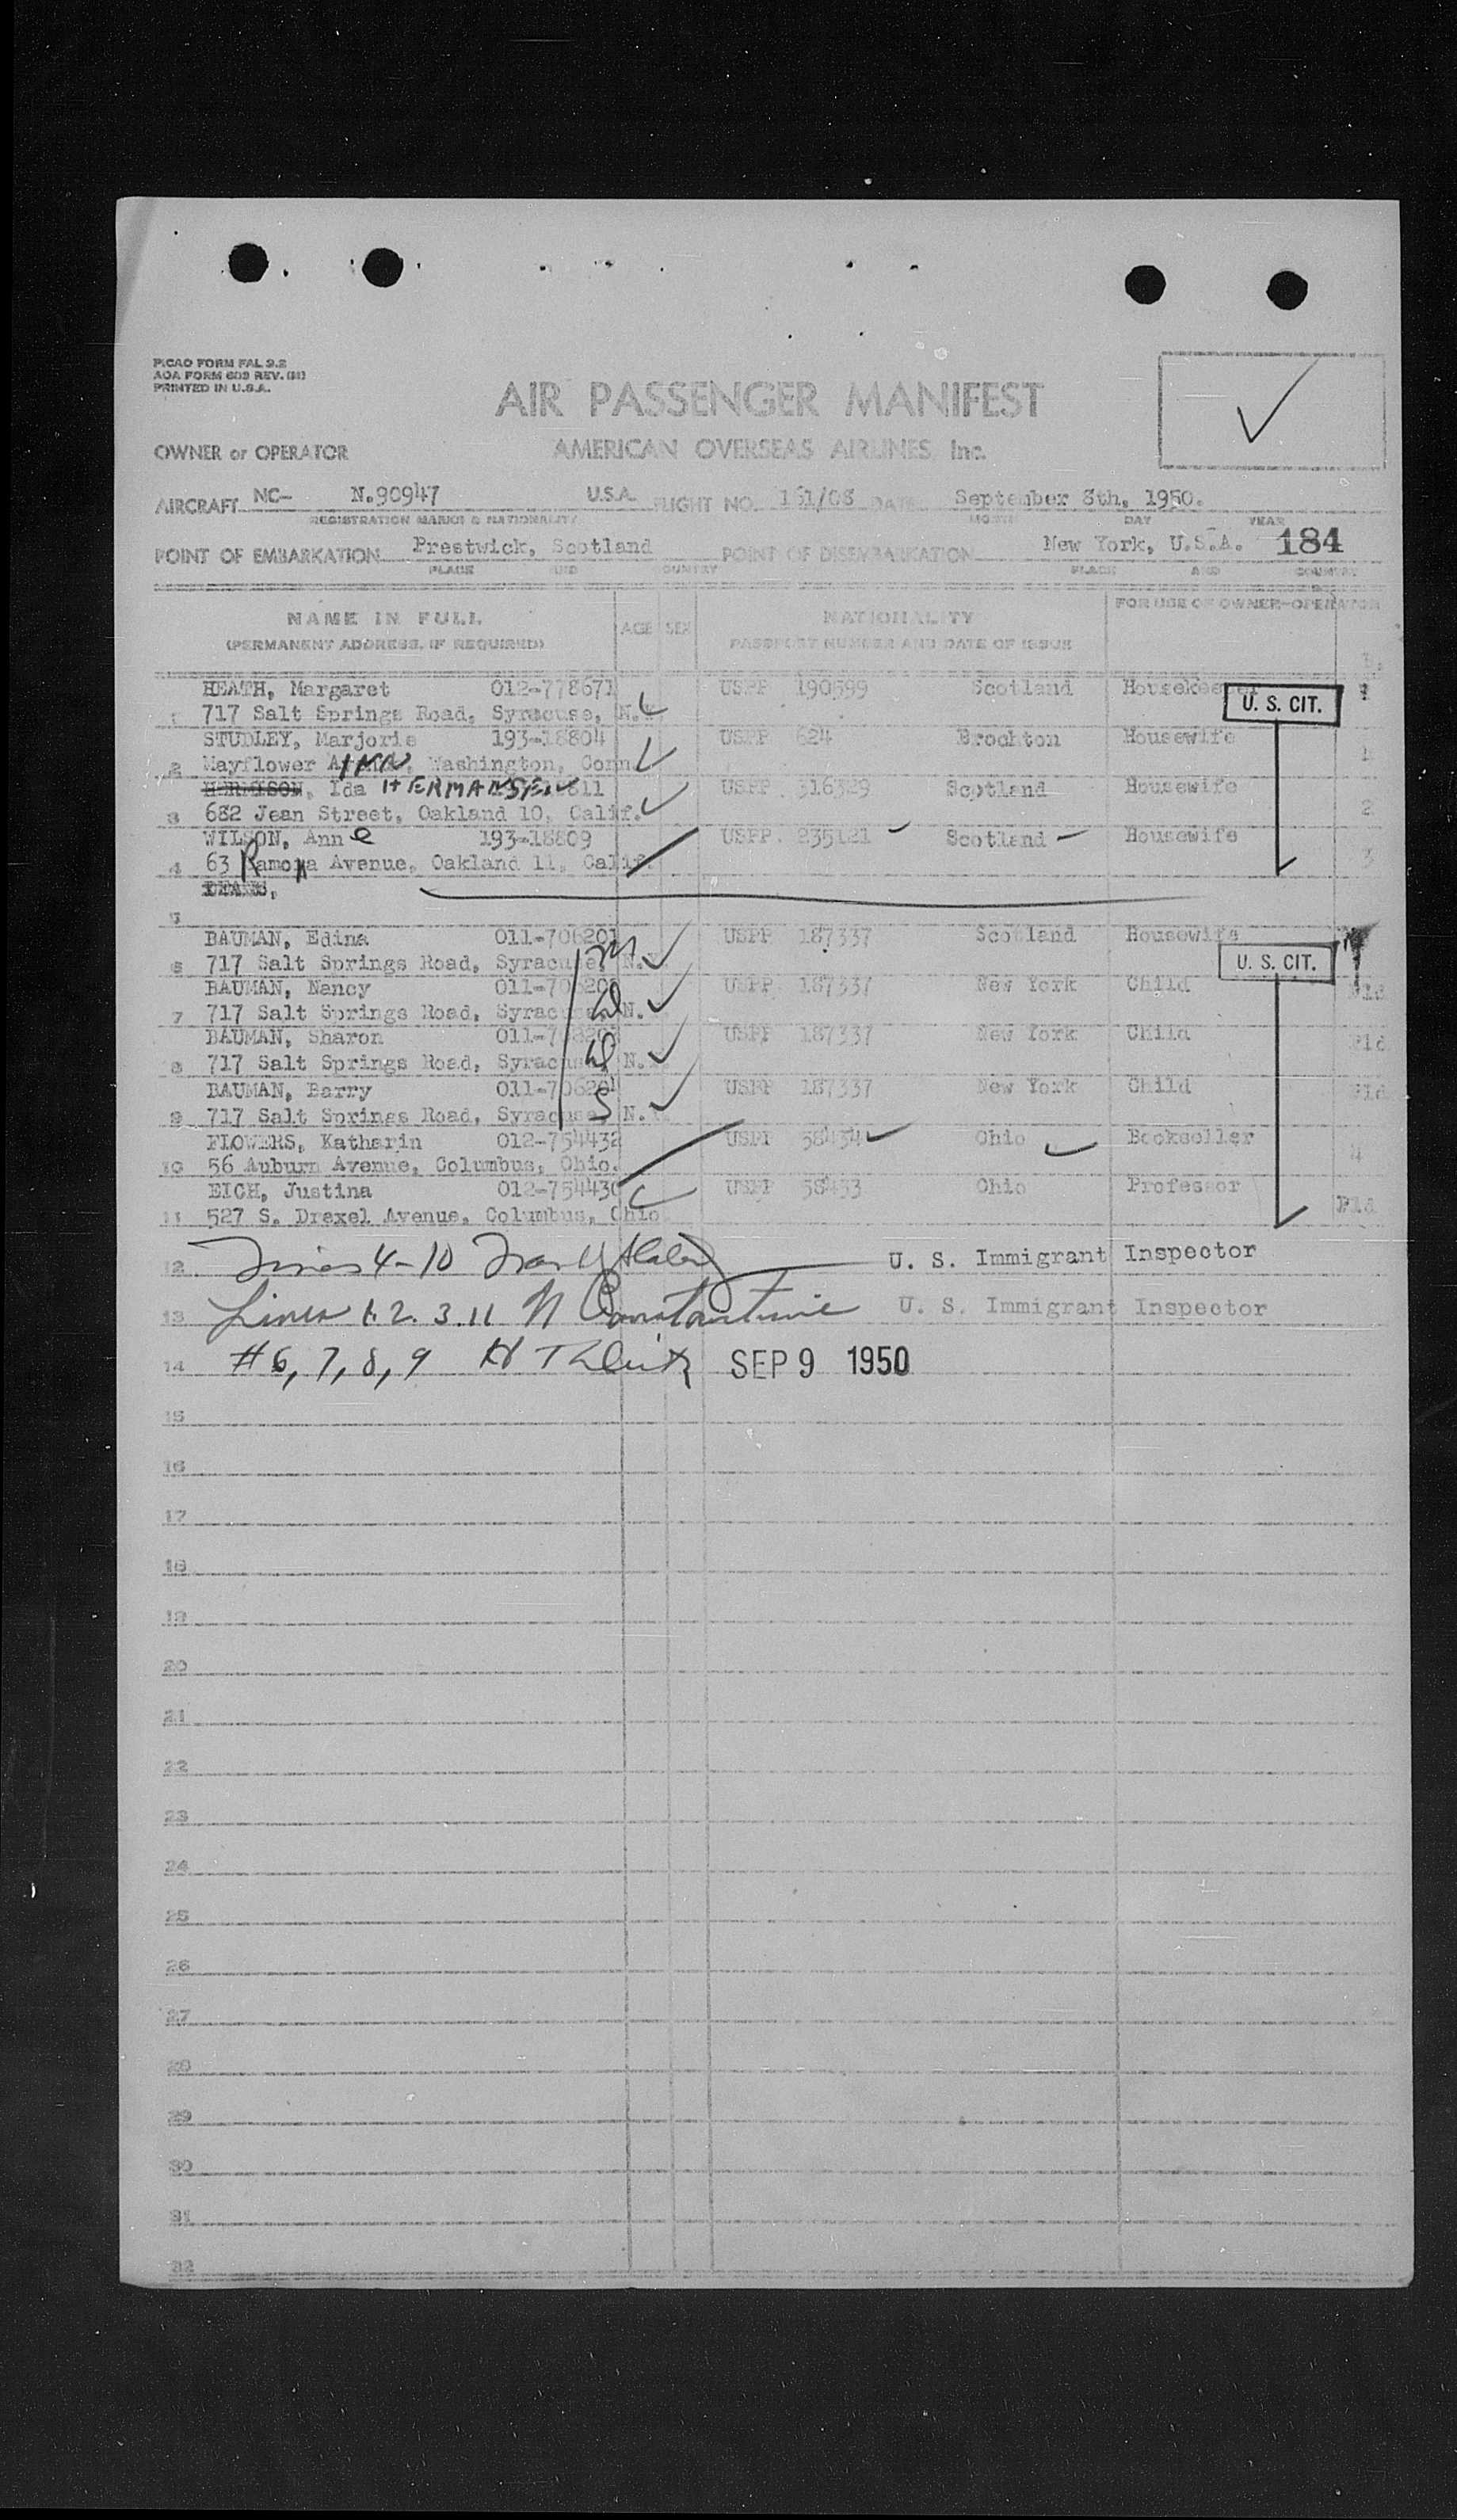 PICAO FORM FAL 2.2
AOA FORM 609 REV.
PRINTED IN U.S.A.
AIR PASSENGER MANIFEST
OWNER or OPERATOR AMERICAN OVERSEAS AIRLINES, Inc.
AIRCRAFT NC- N.90947 U.S.A. FLIGHT NO. 151/08 DATE September 8th, 1950.
REGISTRATION MARKS & NATIONALITY MONTH DAY YEAR
POINT OF EMBARKATION Prestwick, Scotland POINT OF DISEMBARKATION New York, U.S.A. 184
PLACE AND COUNTRY PLACE AND COUNTRY
NAME IN FULL AGE SEX NATIONALITY FOR USE OF OWNER-OPERATOR
(PERMANENT ADDRESS, IF REQUIRED) PASSPORT NUMBER AND DATE OF ISSUE
HEATH, Margaret 012-778671 USPP 190599 Scotland Housekeeper
1 717 Salt Springs Road, Syracuse, N.Y. U. S. CIT.
STUDLEY, Marjorie 193-18804 USPP 624 Brockton Housewife
2 Mayflower INN, Washington, Conn 1
Ida HERMANSEN 811 USPP 316329 Scotland Housewife
3 682 Jean Street, Oakland 10, Calif. 2
WILSON, Anne 193-18809 USPP. 235121 Scotland Housewife
4 63 Ramona Avenue, Oakland 11, Calif. 3
5
BAUMAN, Edina 011-706201 USPP 187337 Scotland Housewife
6 717 Salt Springs Road, Syracuse, N. U. S. CIT.
BAUMAN, Nancy 011-70620 USPP 187337 New York Child
7 717 Salt Springs Road, Syracuse, N.
BAUMAN, Sharon USPP 187337 New York Child
8 717 Salt Springs Road, Syracuse, N.
BAUMAN, Barry 011-70620 USPP 187337 New York Child
9 717 Salt Springs Road, Syracuse, N.
FLOWERS, Katharin 012-754432 USPP 58434 Ohio Bookseller
10 56 Auburn Avenue, Columbus, Ohio. 4
EICH, Justina 012-754430 USPP 58433 Ohio Professor
11 527 S. Drexel Avenue, Columbus, Ohio
12 Lines 4-10 U. S. Immigrant Inspector
13 Lines 1. 2. 3. 11 N Constantine U. S. Immigrant Inspector
14 #6, 7, 8, 9 SEP 9 1950
15
16
17
18
19
20
21
22
23
24
25
26
27
28
29
30
31
32